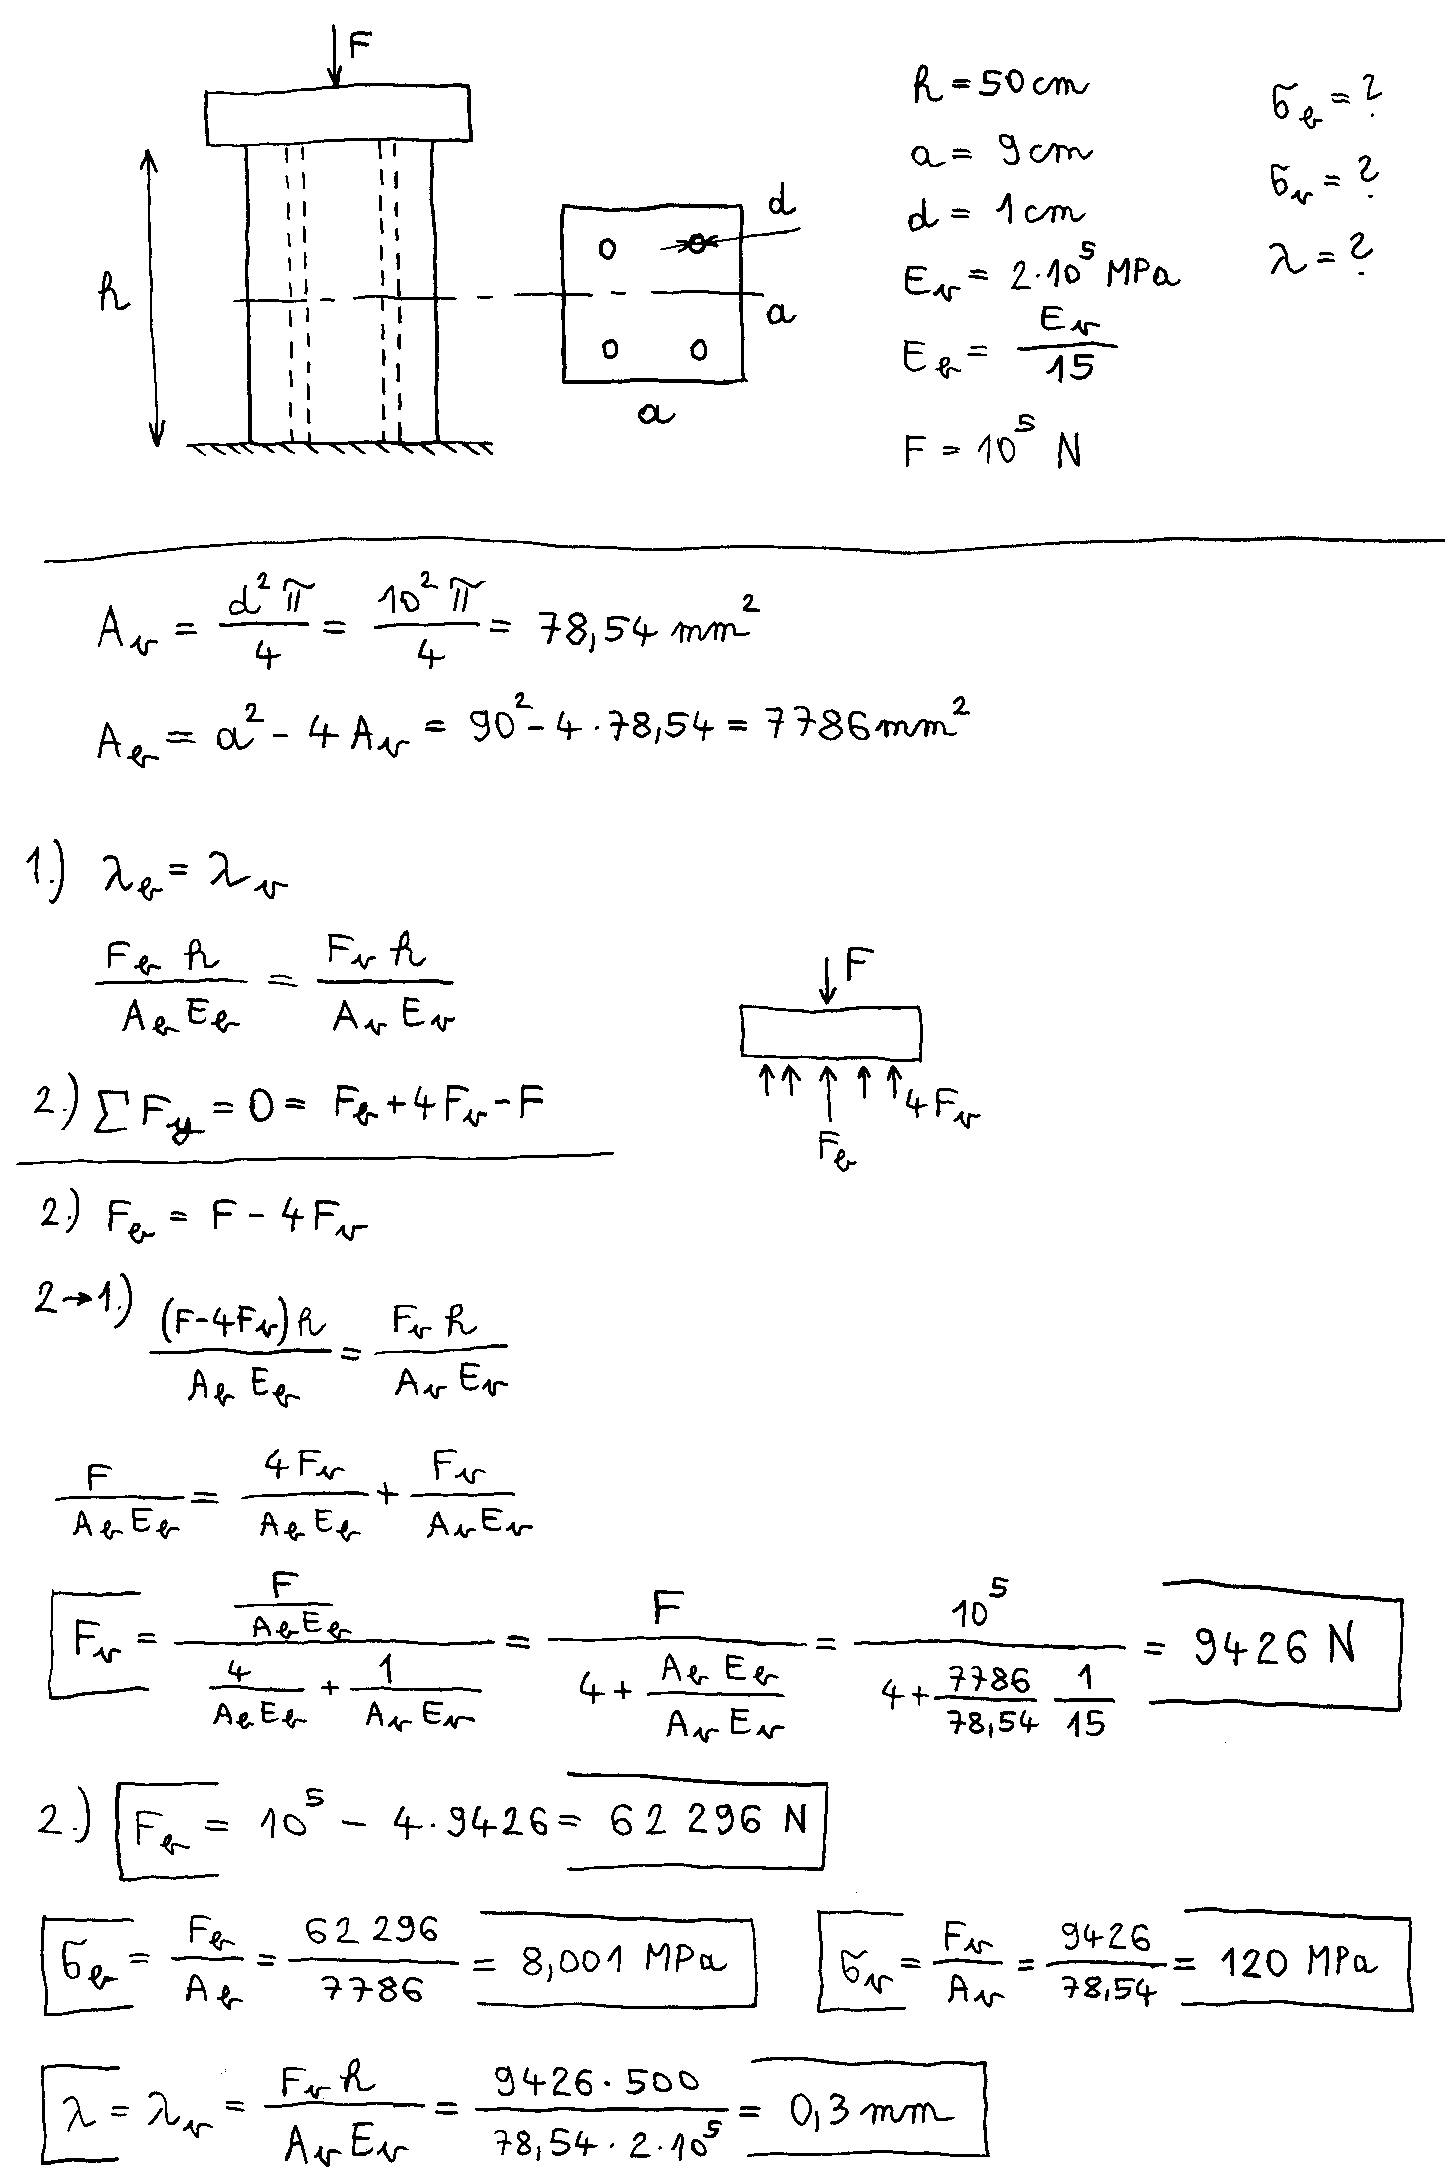 F
h
d
a
a
h = 50 cm
a = 9 cm
d = 1 cm
E_v = 2·10^5 MPa
E_b = E_v / 15
F = 10^5 N
σ_b = ?
σ_v = ?
λ = ?
A_v = d²π / 4 = 10²π / 4 = 78,54 mm²
A_b = a² - 4 A_v = 90² - 4 · 78,54 = 7786 mm²
1.) λ_b = λ_v
F_b h / A_b E_b = F_v h / A_v E_v
2.) ΣF_y = 0 = F_b + 4F_v - F
F
4F_v
F_b
2.) F_b = F - 4F_v
2→1.) (F-4F_v) h / A_b E_b = F_v h / A_v E_v
F / A_b E_b = 4F_v / A_b E_b + F_v / A_v E_v
F_v = (F / A_b E_b) / (4 / A_b E_b + 1 / A_v E_v) = F / (4 + A_b E_b / A_v E_v) = 10^5 / (4 + 7786 / 78,54 1 / 15) = 9426 N
2.) F_b = 10^5 - 4·9426 = 62 296 N
σ_b = F_b / A_b = 62 296 / 7786 = 8,001 MPa
σ_v = F_v / A_v = 9426 / 78,54 = 120 MPa
λ = λ_v = F_v h / A_v E_v = 9426 · 500 / 78,54 · 2 · 10^5 = 0,3 mm